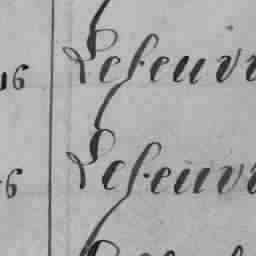 16 Lefeuvr
16 Lefeuvr